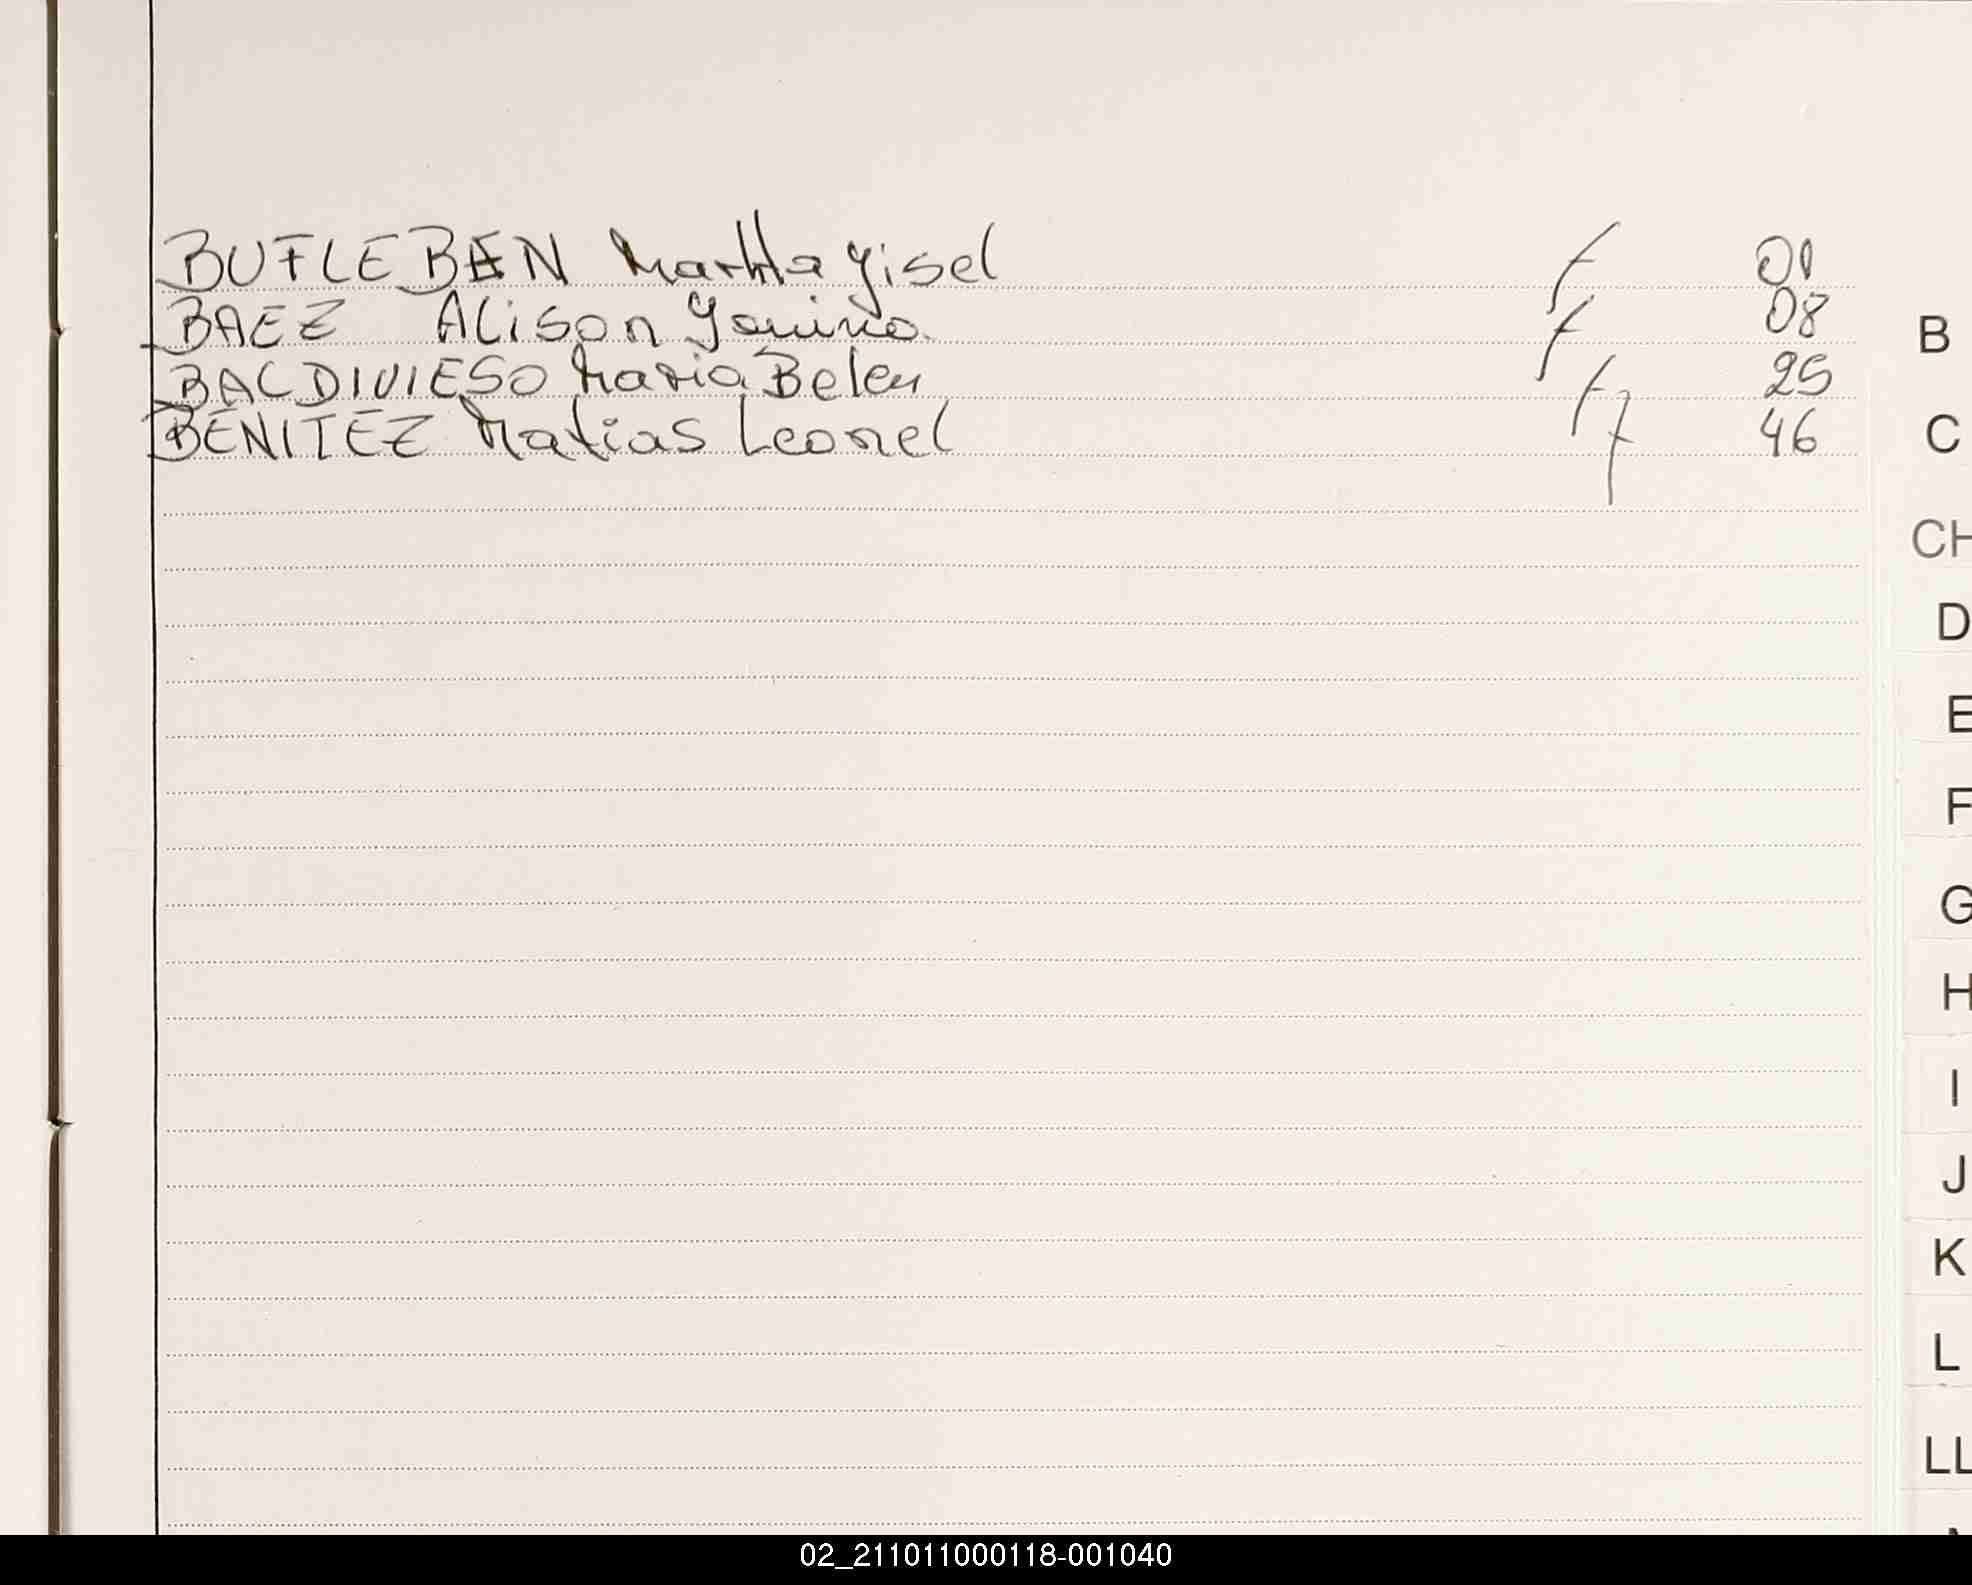 BUFLEBEN Martha Yisel F 01
BAEZ Alison Yanina F 08
BALDIVIESO Maria Belen F 25
BENITEZ Matias Leonel F 46
B
C
CH
D
E
F
G
H
I
J
K
L
LL
02_211011000118-001040